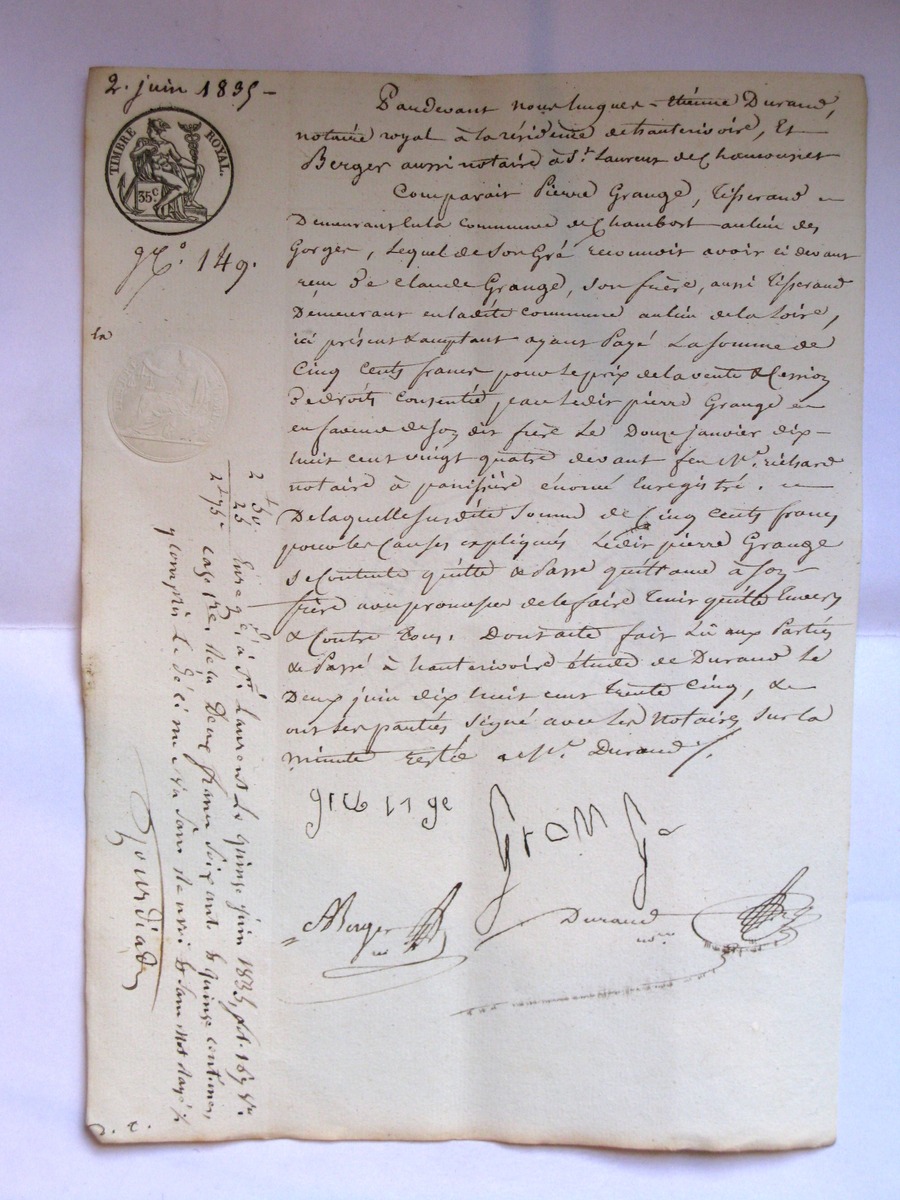 2. juin 1835 -
TIMBRE ROYAL.
35 c
No. 149.
Pardevant nous Hugues-Etienne Durand,
notaire royal à la résidence de hauterivoire, Et
Berger aussi notaire à St. Laurent de Chamousset
Comparait Pierre Grange, Tisserand
Demeurant en la Commune de Chambost au lieu des
Gorges, Lequel de Son Gré reconnoit avoir ci devant
reçu De Claude Grange, son frère, aussi Tisserand
Demeurant en ladite commune au lieu de la Loire,
ici présent & acceptant ayant Payé La Somme de
Cinq Cents francs pour Le prix de la vente & Cession
De droits Consentie par Ledit pierre Grange
en faveur de Son dit frère Le Douze janvier dix
huit cent vingt quatre devant feu Me. richard
notaire à panissière Enregistré.
De laquelle susdite Somme de Cinq Cents francs
pour les Causes expliqués Ledit pierre Grange
Se Contente quitte & Passe quittance à Son
frère avec promesse de le faire Tenir quitte Envers
& Contre Tous. Dont acte fait Lû aux Parties
& Passé à hauterivoire étude de Durand Le
Deux juin dix huit cent trente Cinq, &
ont Les parties Signé avec Les Notaires Sur La
minute restée à Me. Durand
grange
Grange
ABerger
Durand
2 50
25
2 75
Enregé. à St. Laurent Le quinze juin 1835, fo. 169 vo.
case 1re. reçu Deux francs Soixante & quinze centimes,
y compris Le Décime
Gourdiat